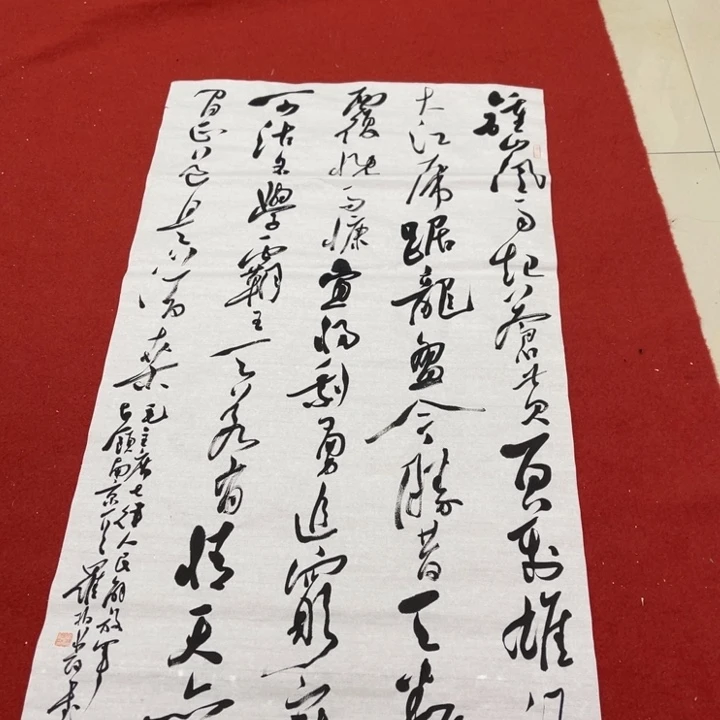 鍾山風雨起蒼黄百万雄
大江虎踞龍盘今勝昔天翻
覆慨而慷宜将剩勇追窮寇
可沽名學霸王天若有情天亦
间正道是滄桑
毛主席七律人民解放軍
占領南京
羅 书